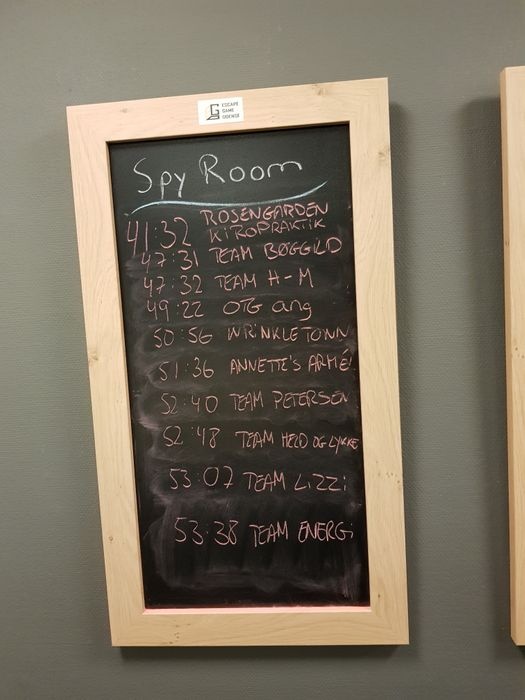 ESCAPE
GAME
ODENSE
Spy Room
41:32 ROSENGARDEN
KIROPRAKTIK
47:31 TEAM BØGGILD
47:32 TEAM H-M
49:22 OTG ang
50:56 WRINKLETOWN
51:36 ANNETTE'S ARMÉ!
52:40 TEAM PETERSEN
52:48 TEAM HELD OG LYKKE
53:07 TEAM LIZZi
53:38 TEAM ENERGi